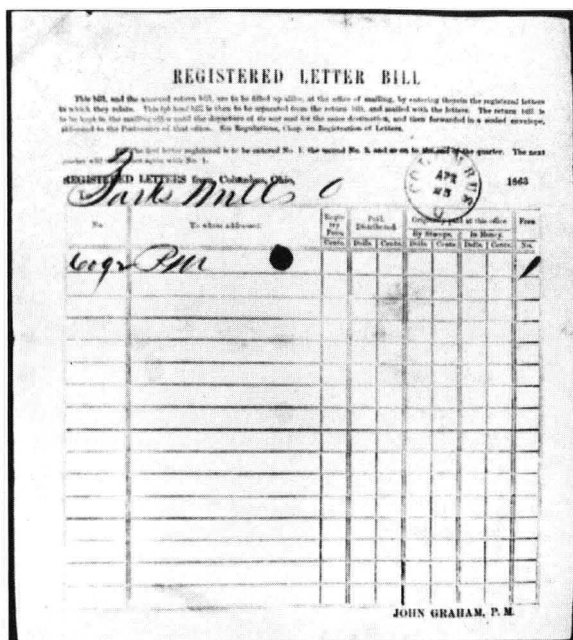 REGISTERED LETTER BILL
This bill, and the annexed return bill, are to be filled up alike, at the office of mailing, by entering therein the registered letters
to which they relate. This bill is then to be separated from the return bill, and mailed with the letters. The return bill is
to be kept in the mailing office until the departure of the next mail for the same destination, and then forwarded in a sealed envelope,
addressed to the Postmaster of that office. See Regulations, Chap. on Registration of Letters.
the first letter registered is to be entered No. 1, the second No. 2, and so on to the end of the quarter. The next
quarter will again with No. 1.
REGISTERED LETTERS from Columbus, Ohio,
COLUMBUS
APR
25
O
1863
Mill O
No.
To whom addressed.
Regis-
try
Fees.
Paid.
Distributed
paid at this office
Free.
By Stamps.
In Money.
Cents.
Dolls.
Cents.
Dolls.
Cents.
Dolls.
Cents.
No.
PM
1
JOHN GRAHAM, P. M.